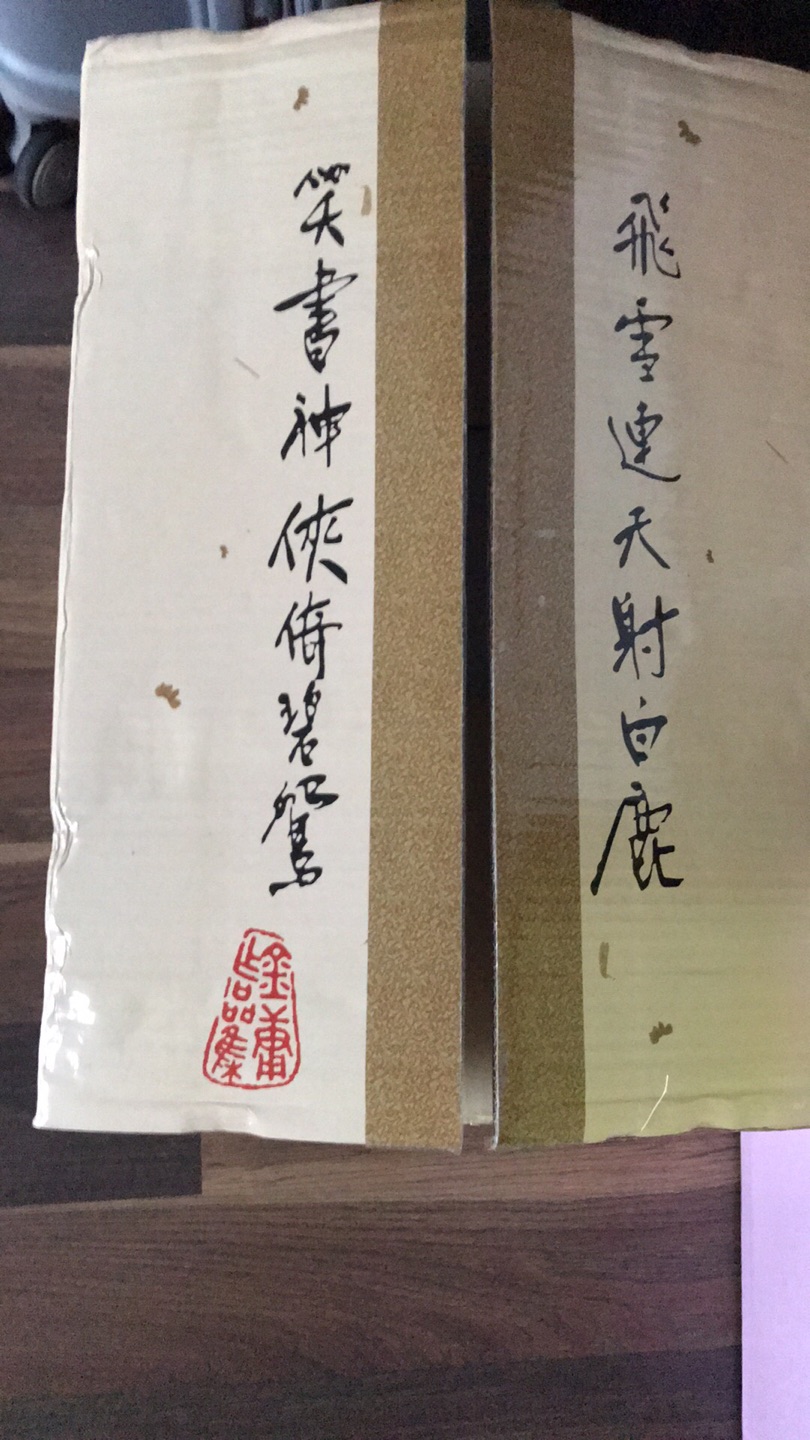 飛雪連天射白鹿
笑書神俠倚碧鴛
金庸作品集